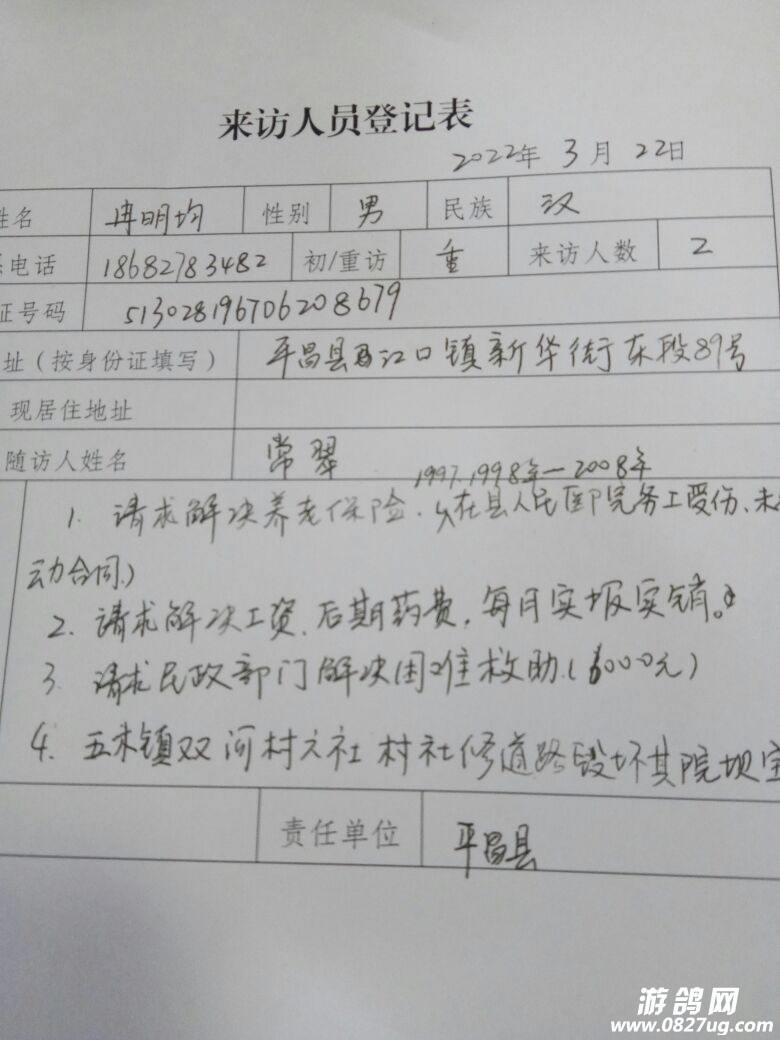 来访人员登记表
2022年 3月 22日
姓名 冉明均 性别 男 民族 汉
系电话 18682783482 初/重访 重 来访人数 2
证号码 513028196706208679
址（按身份证填写） 平昌县江口镇新华街东段89号
现居住地址
随访人姓名 常翠
1997.1998年—2008年
1. 请求解决养老保险.(在县人民医院务工受伤、未
动合同.)
2. 请求解决工资.后期药费,每月实报实销。
3. 请求民政部门解决困难救助.(6000元)
4. 五木镇双河村六社村社修道路毁坏其院坝
责任单位 平昌县
游鸽网
www.0827ug.com